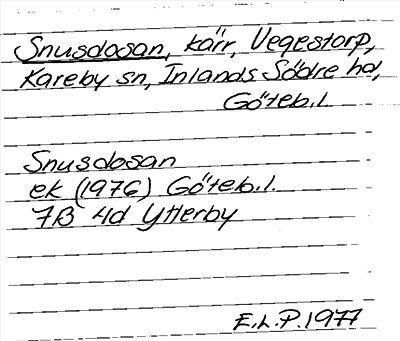 Snusdosan, kärr, Vegestorp,
Kareby sn, Inlands Södre hd,
Göteb.l.
Snusdosan
ek (1976) Göteb.l.
7B 4d Ytterby
E.L.P.1977